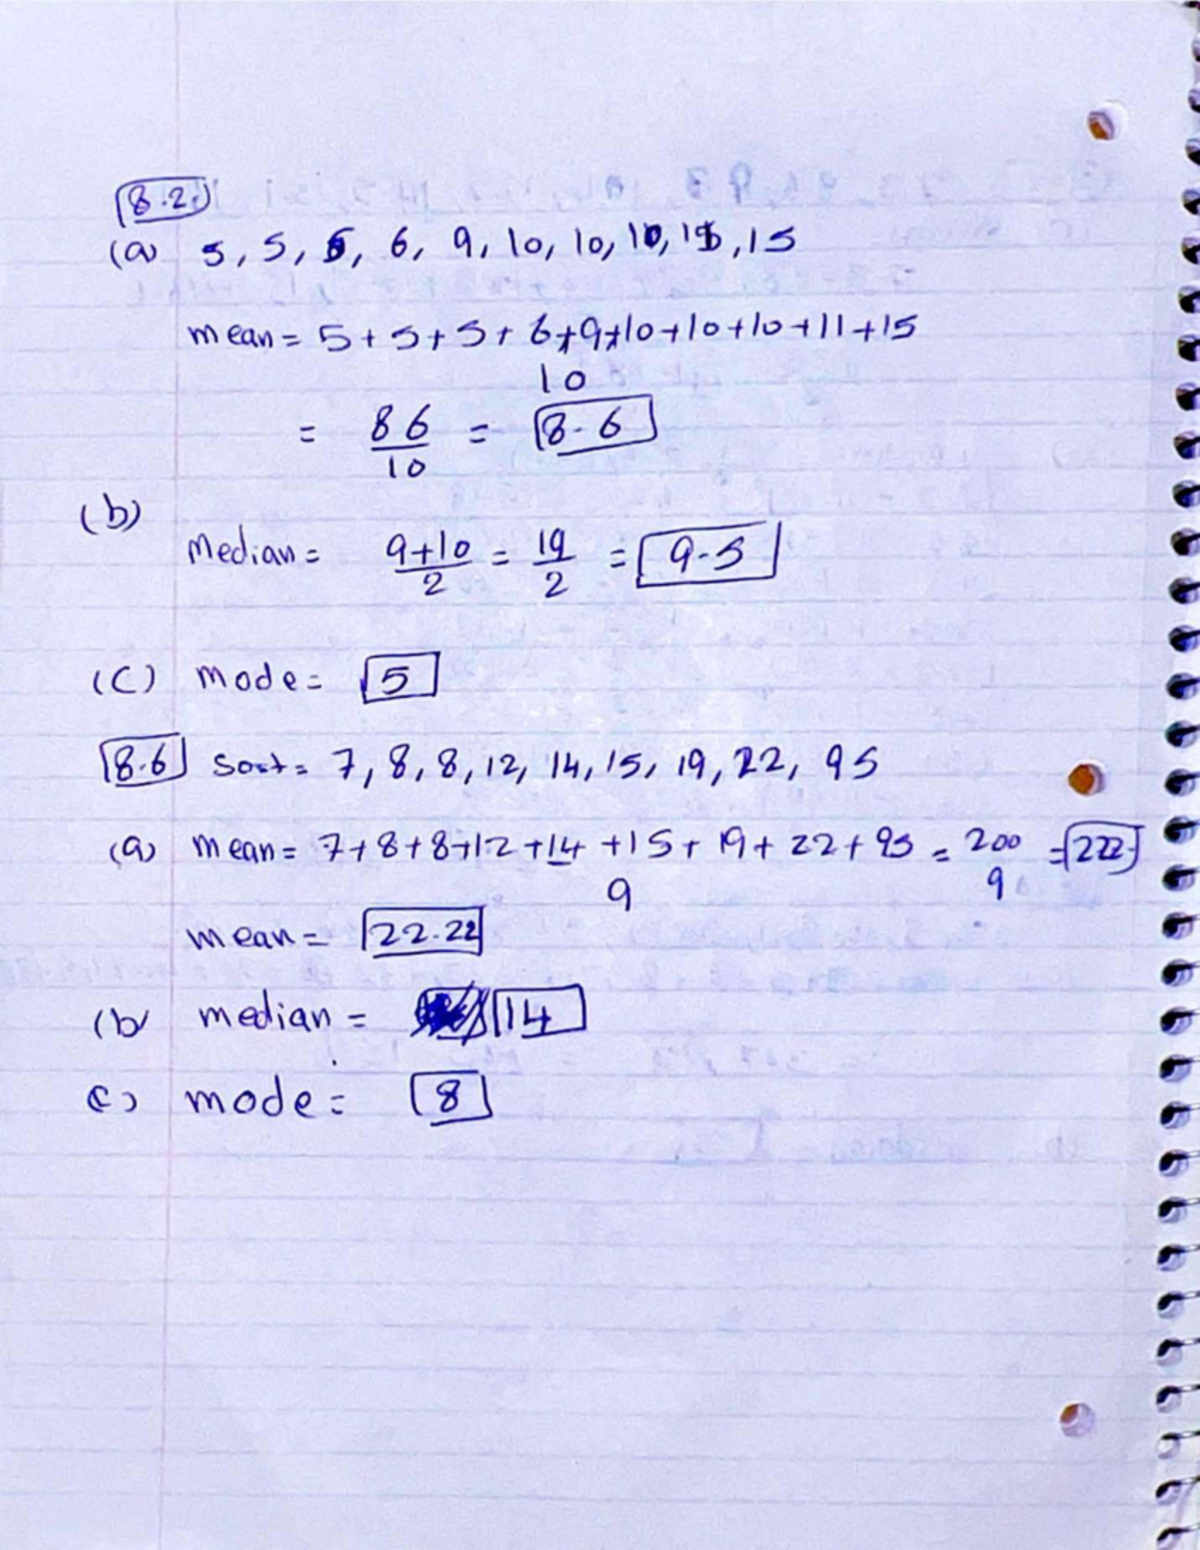 8.2
(a) 5, 5, 5, 6, 9, 10, 10, 10, 15, 15
mean = 5 + 5 + 5 + 6 + 9 + 10 + 10 + 10 + 11 + 15
10
= 86/10 = 8.6
(b)
Median = 9+10/2 = 19/2 = 9.5
(C) mode = 5
8.6 Sort = 7, 8, 8, 12, 14, 15, 19, 22, 95
(a) mean = 7 + 8 + 8 + 12 + 14 + 15 + 19 + 22 + 95 = 200 = 222
9 9
mean = 22.22
(b) median = 14
(c) mode = 8